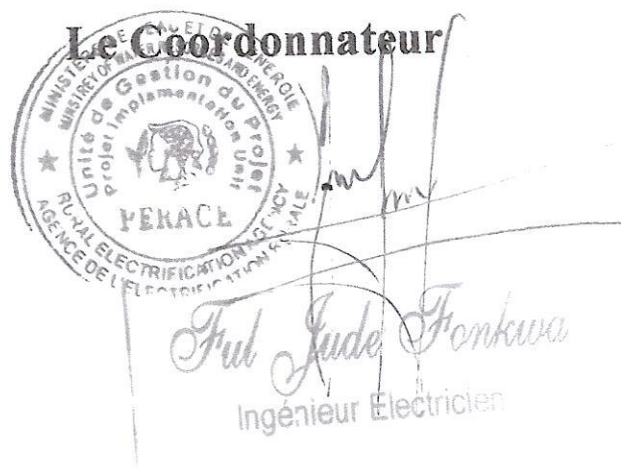 Le Coordonnateur
MINISTERE DE L'EAU ET DE L'ENERGIE
MINSIREY OF WATER RESOURCES AND ENERGY
Unité de Gestion du Projet
Projet Implementation Unit
PERACE
RURAL ELECTRIFICATION AGENCY
AGENCE DE L'ELECTRIFICATION RURALE
Ful Jude Fonkwa
Ingénieur Electricien